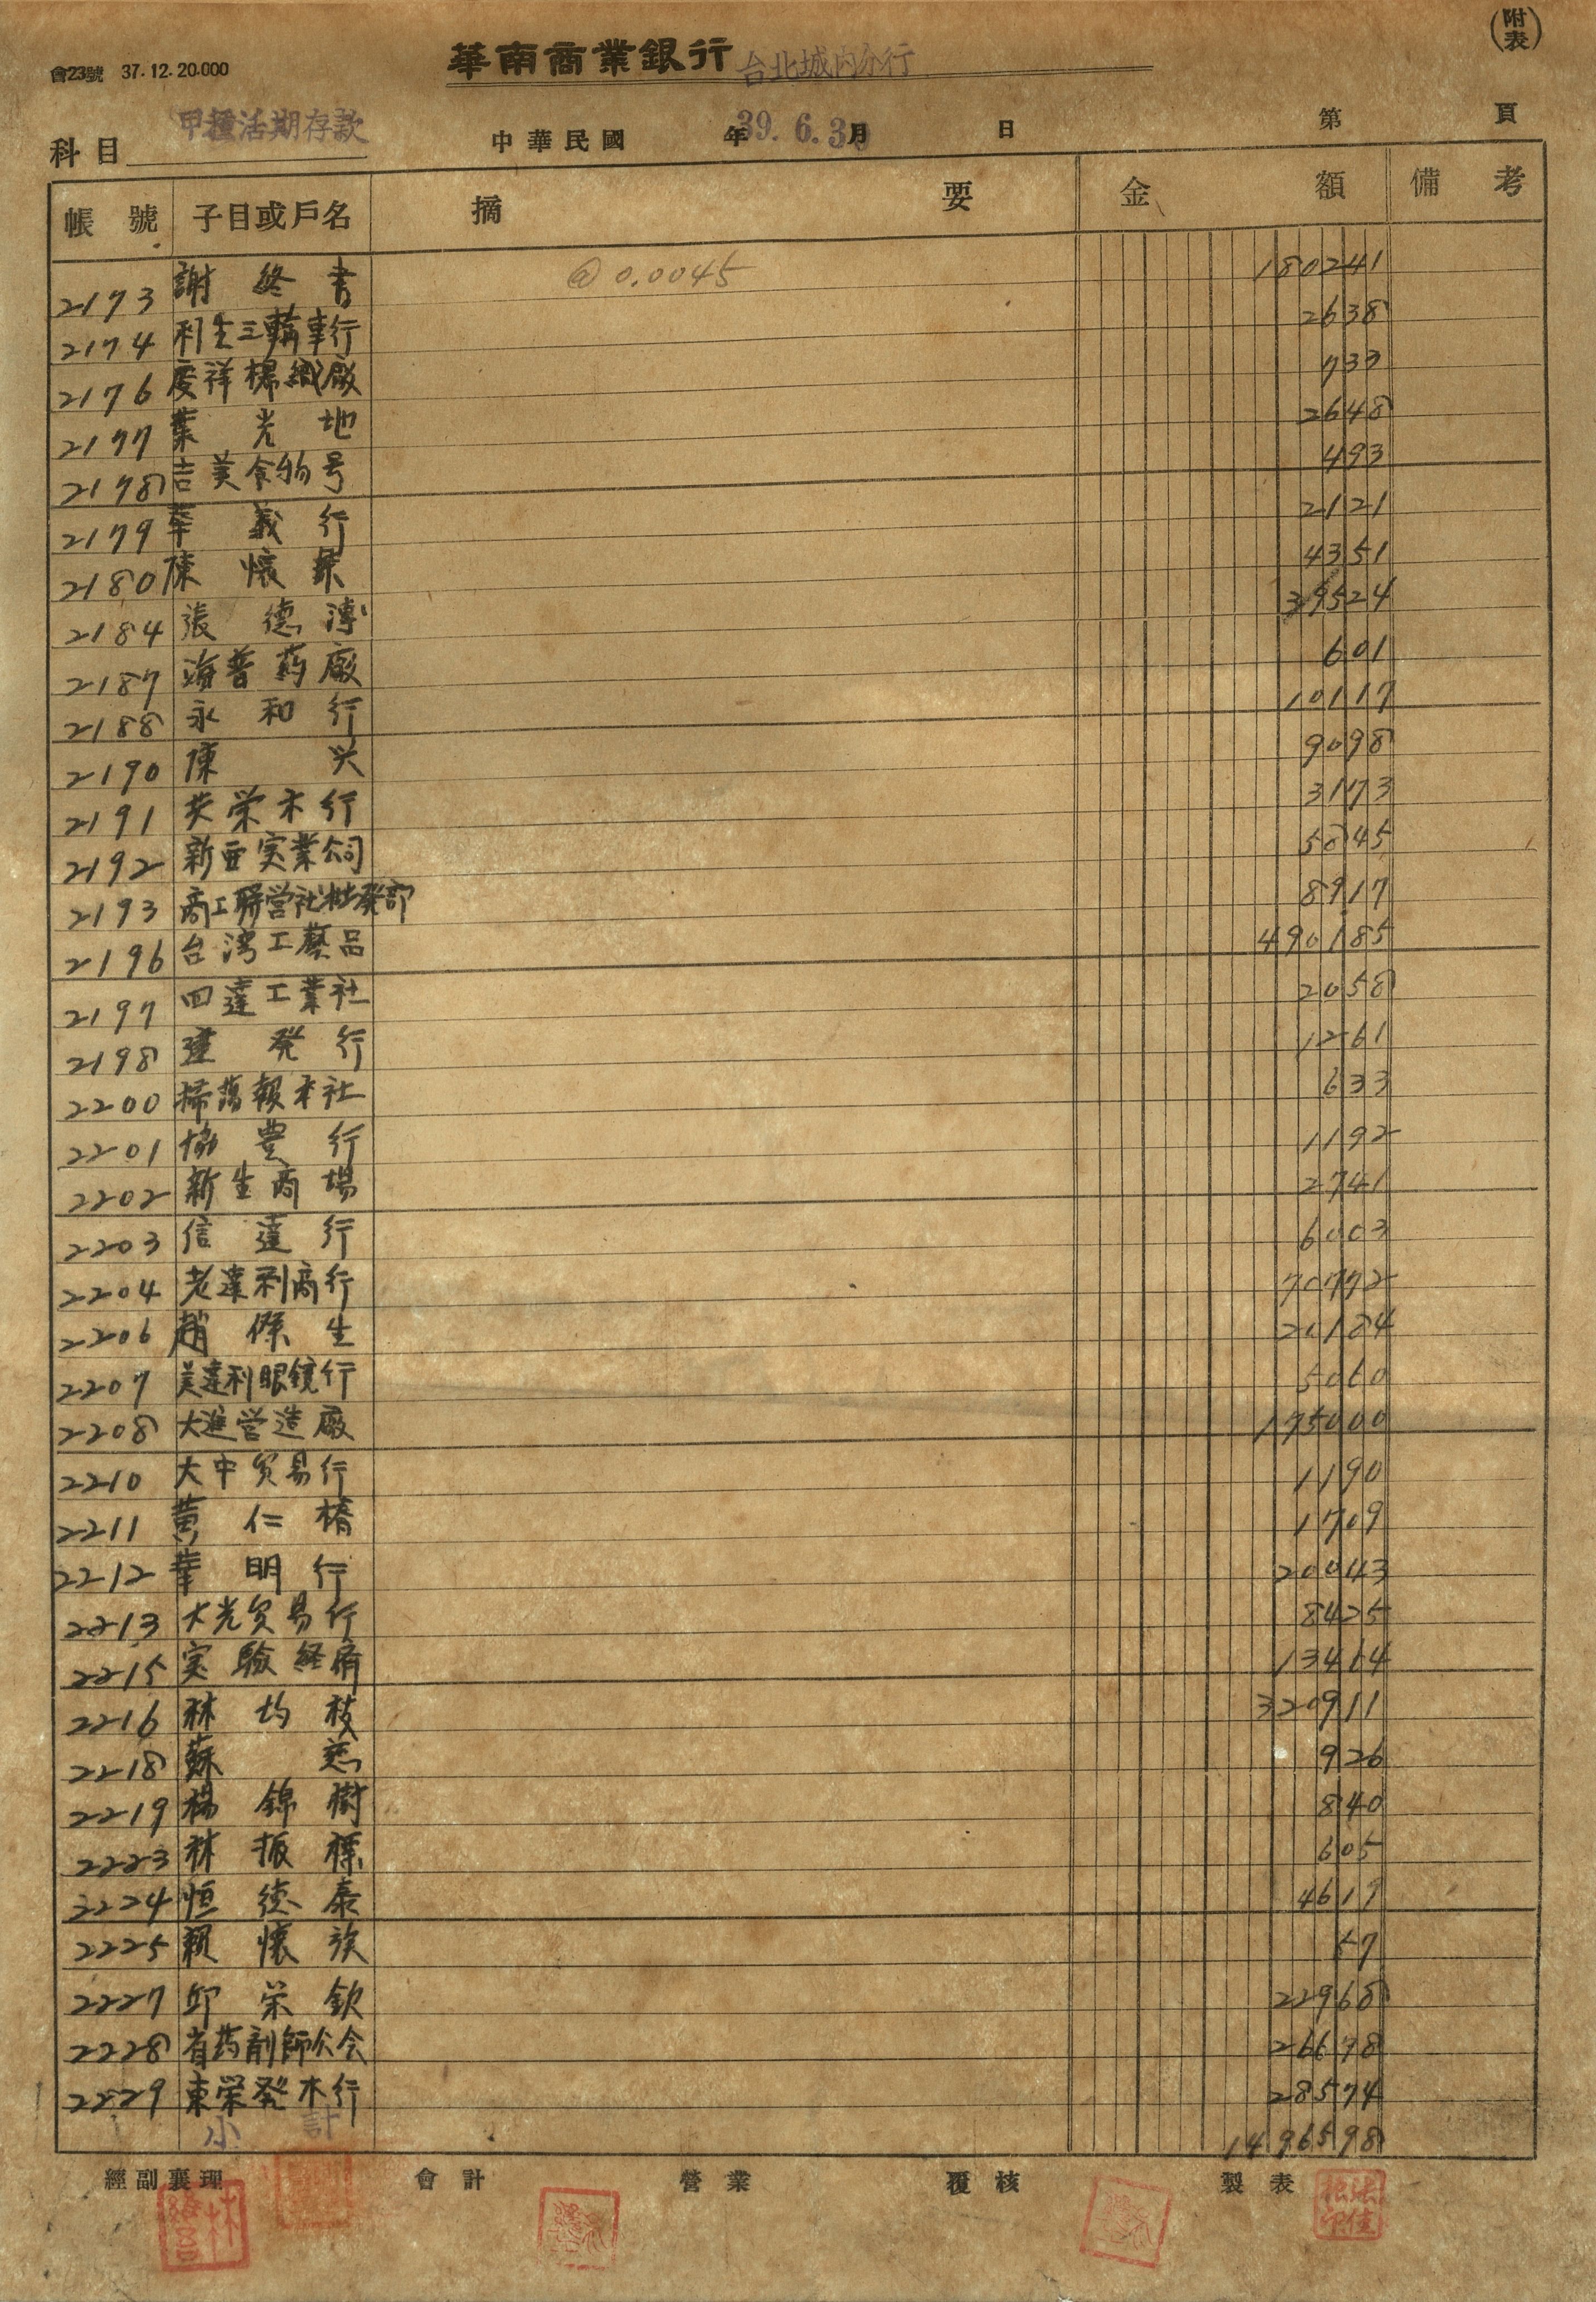 (附表)
會23號 37.12.20.000
華南商業銀行 台北城内分行
科目 甲種活期存款 中華民國 39年 6.月30日 第 頁
帳號 子目或戶名 摘要 金額 備考
2173 謝終書 @0.0045 180241
2174 利生三輪車行 2638
2176 慶祥棉織廠 733
2177 葉光地 2648
2178 吉美食物号 493
2179 華義行 2121
2180 陳懷 4351
2184 張德溥 39524
2187 海普药廠 601
2188 永和行 10117
2190 陳兴 9098
2191 共荣木行 3173
2192 新亜実業公司 5845
2193 商工聯営社批発部 8917
2196 台湾工藝品 490185
2197 四達工業社 2058
2198 建発行 1261
2200 掃蕩報 社 633
2201 協豊行 1192
2202 新生商場 2741
2203 信達行 6003
2204 老達利商行 70772
2206 趙傑生 20184
2207 美達利眼鏡行 5060
2208 大進営造廠 175000
2210 大中貿易行 1190
2211 黄仁楷 1709
2212 華明行 20043
2213 大光貿易行 8425
2215 実驗経済 13414
2216 林均枝 320911
2218 蘇 926
2219 楊錦樹 840
2223 林振標 605
2224 恒德泰 4617
2225 賴懷 57
2227 邱栄欽 22968
2228 省药剤師公会 26678
2229 東栄発木行 28574
小計 1496598
經副襄理 會計 營業 覆核 製表